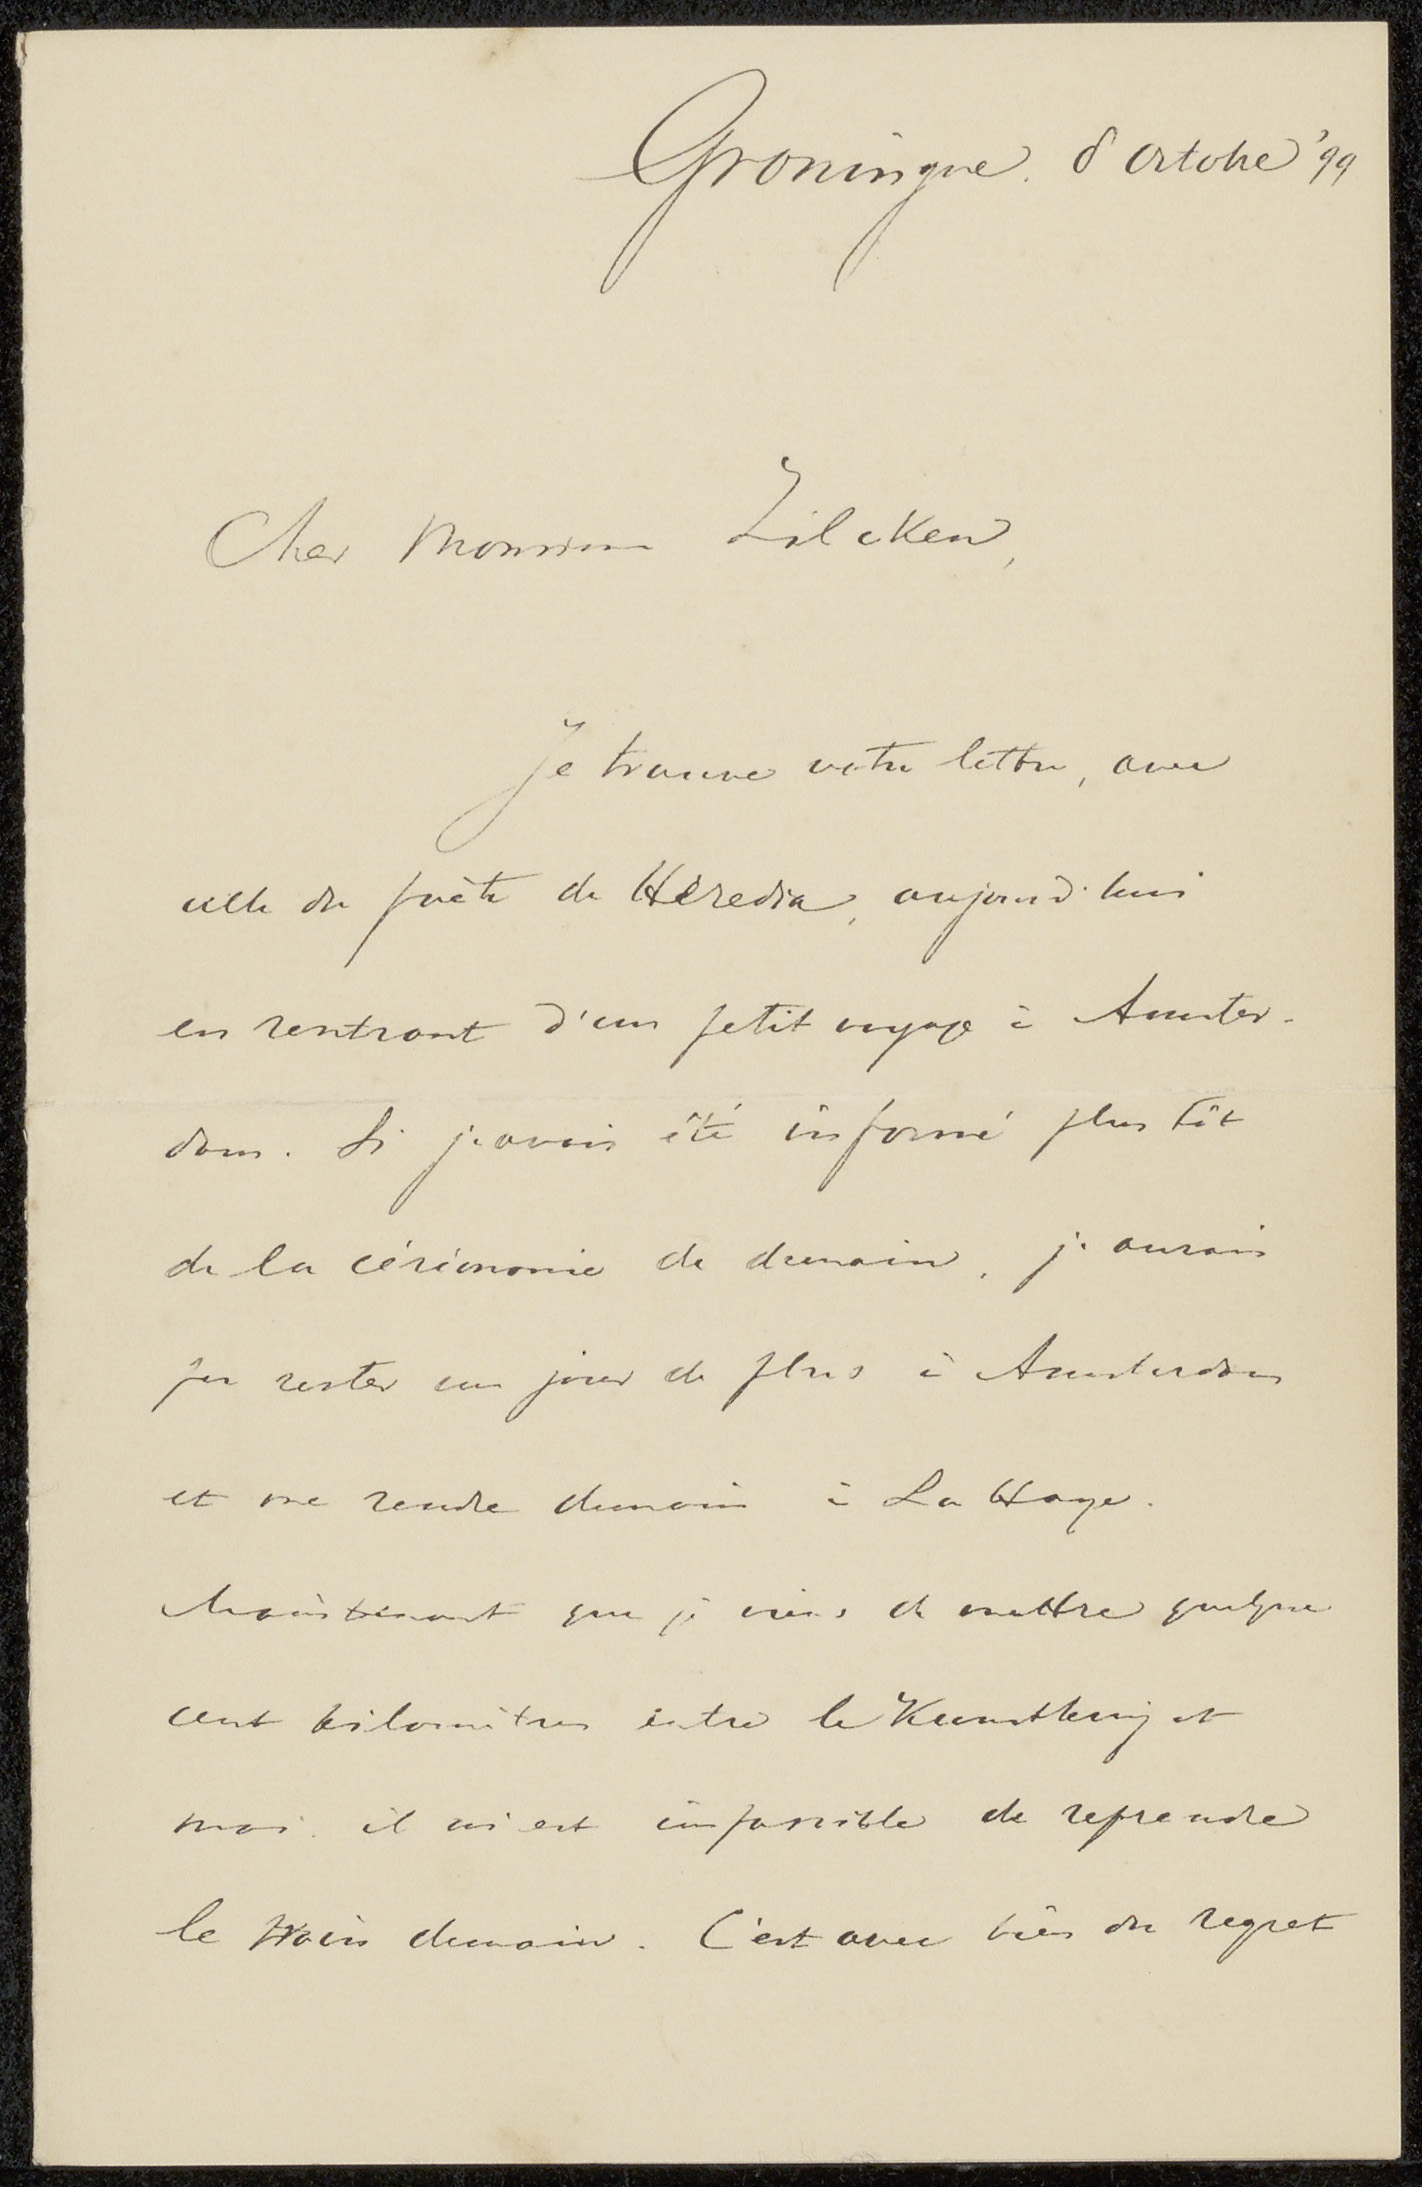 Groningue. 8 octobre '99
Cher Monsieur Zilcken,
Je trouve votre lettre, avec
celle du poète de Hérédia, aujourd'hui
en rentrant d'un petit voyage à Amster-
dam. Si j'avais été informé plus tôt
de la cérémonie de demain, j'aurais
pu rester un jour de plus à Amsterdam
et me rendre demain à La Haye.
Maintenant que je viens de mettre quelque
cent kilomètres entre le Kunstkring et
moi il m'est impossible de reprendre
le train demain. C'est avec bien du regret